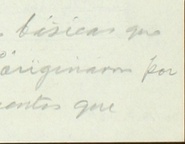 básicas que
originaron por
entos que